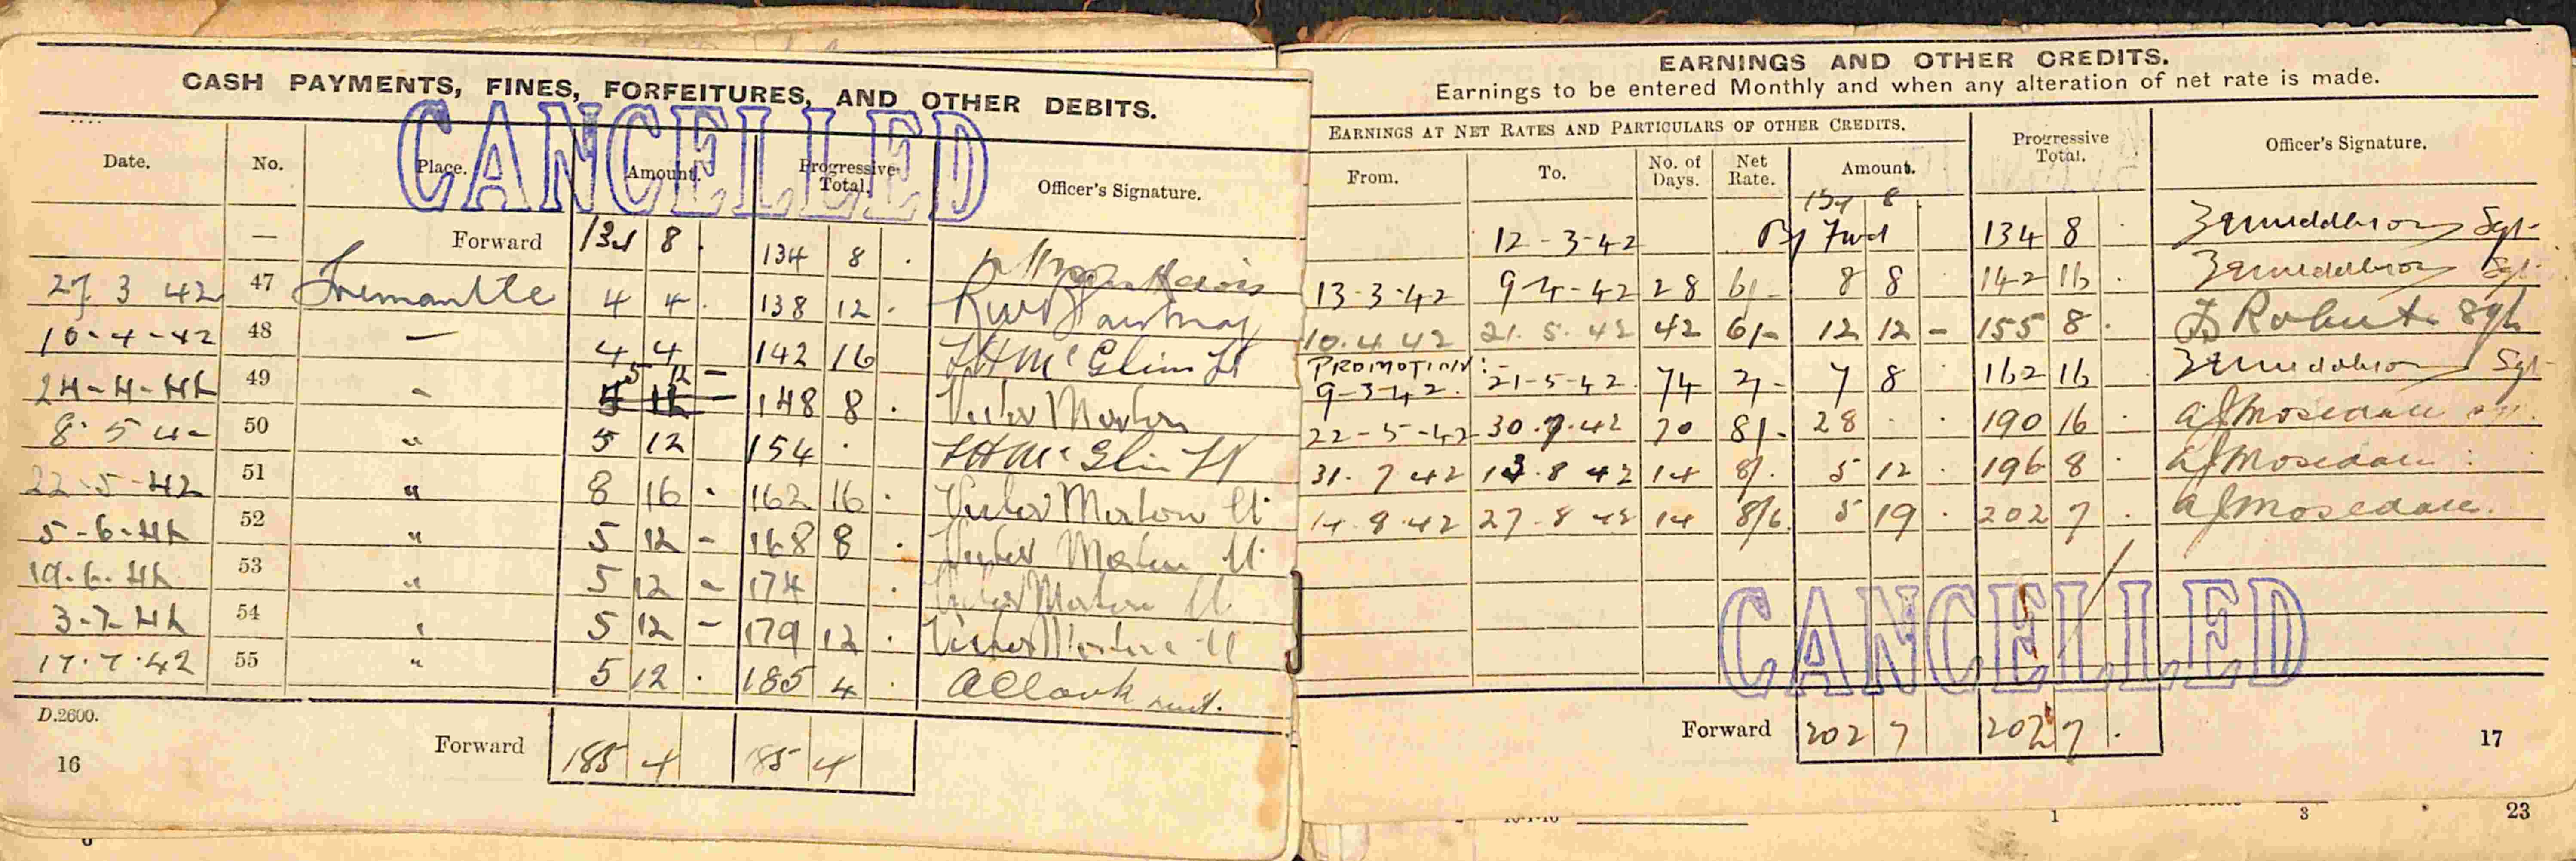 CASH PAYMENTS, FINES, FORFEITURES, AND OTHER DEBITS.
CANCELLED
Date. No. Place. Amount. Progressive Total. Officer's Signature.
— Forward 134 8 . 134 8 .
27. 3 42 47 Fremantle 4 4 . 138 12 .
10-4-42 48 — 4 4 142 16
5 12 —
24-4-42 49 " 5 12 — 148 8 . Victor Morton
8. 5 42 50 " 5 12 154 .
22-5-42 51 " 8 16 . 162 16 . Victor Morton Lt
5-6-42 52 " 5 12 - 168 8 . Victor Morton Lt
19.6.42 53 " 5 12 - 174 . Victor Morton Lt
3-7-42 54 " 5 12 - 179 12 . Victor Morton Lt
17.7.42 55 " 5 12 . 185 4 . A Clark
D.2600.
Forward 185 4 185 4
16
EARNINGS AND OTHER CREDITS.
Earnings to be entered Monthly and when any alteration of net rate is made.
EARNINGS AT NET RATES AND PARTICULARS OF OTHER CREDITS. Progressive Total. Officer's Signature.
From. To. No. of Days. Net Rate. Amount.
134 8 .
12-3-42 By Fwd 134 8 . Sgt.
13-3-42 9-4-42 28 6/- 8 8 142 16 . Sgt.
10.4.42 21.5.42 42 6/- 12 12 - 155 8 . Roberts Sgt
PROMOTION:
9-3-42. 21-5-42. 74 2/- 7 8 162 16 Sgt.
22-5-42 30.7.42 70 8/- 28 . . 190 16 . A J Mosedale
31. 7 42 13.8 42 14 8/. 5 12 . 196 8 . A J Mosedale
14.8.42 27.8 42 14 8/6 5 19 . 202 7 . A J Mosedale.
CANCELLED
Forward 202 7 202 7 .
17
1 3 23